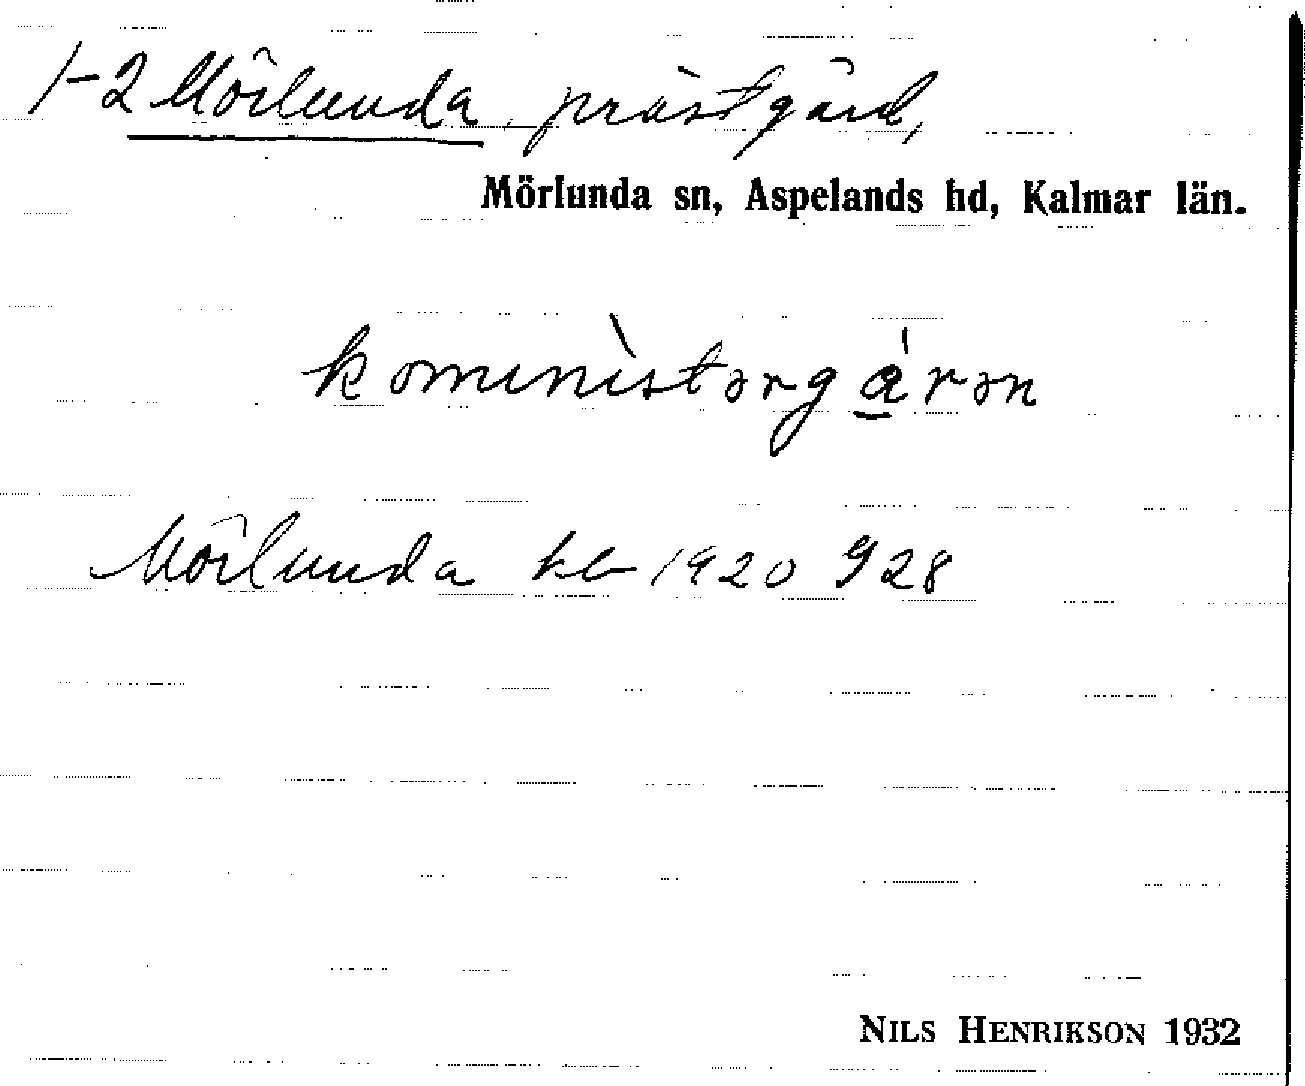 1-2 Mörlunda, prästgård,
Mörlunda sn, Aspelands hd, Kalmar län.
kominìstərgá̱rən
Mörlunda hb 1920 928
NILS HENRIKSON 1932